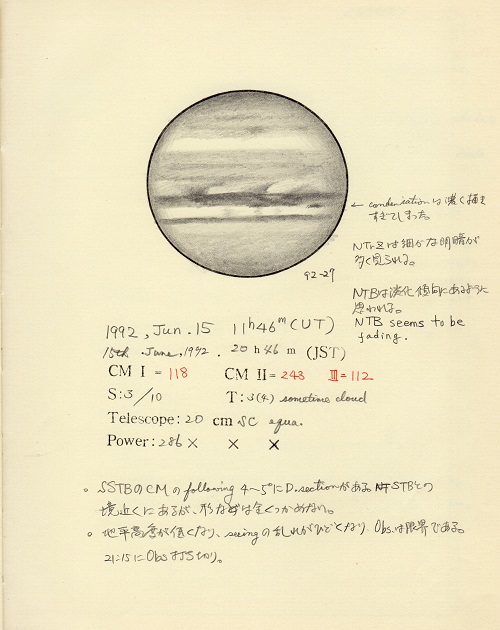 ← condensationは濃く描き
すぎてしまった
NTrZは細かな明暗が
多く見られる。
92-27
NTBは淡化傾向にあるように
思われる。
NTB seems to be
fading.
1992, Jun. 15 11h46m (UT)
15th. June, 1992. 20h46m (JST)
CM I = 118 CM II = 243 III = 112
S: 3/10 T: 3(4) sometime cloud
Telescope: 20 cm SC equa.
Power: 286 × × ×
○ SSTBのCMのfollowing 4~5°にD. sectionがある STBとの
境近くにあるが、形などは全くつかめない。
○ 地平高度が低くなり、seeingの乱れがひどくなり、Obs.は限界である。
21:15にObs打ち切り。